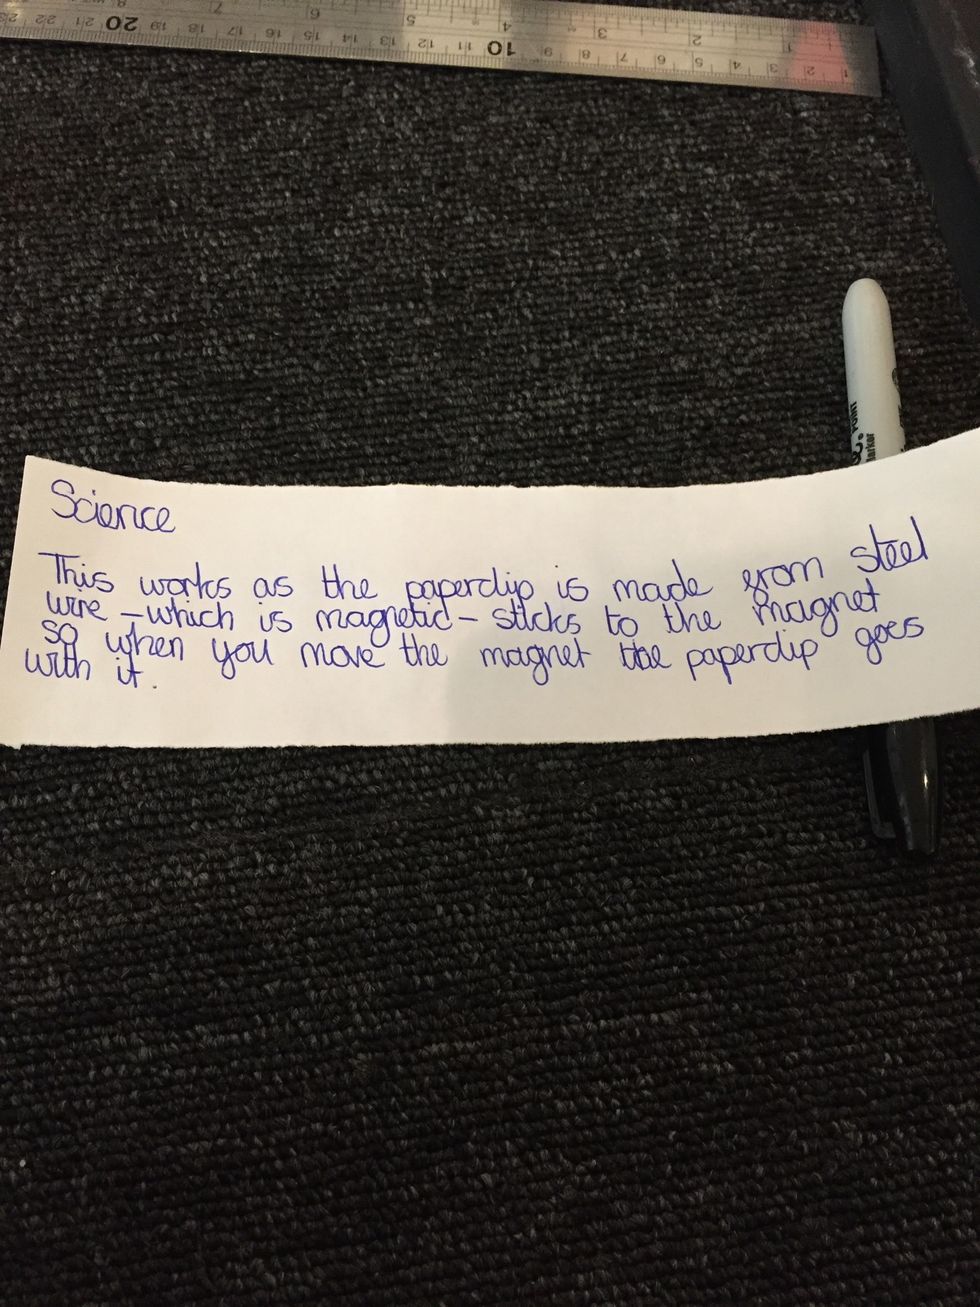 8 7 6 5 4 3 2 1
23 22 21 20 19 18 17 16 15 14 13 12 11 10 9 8 7 6 5 4 3 2 1
POINT
Science
This works as the paperclip is made from steel
wire - which is magnetic - sticks to the magnet
so when you move the magnet the paperclip goes
with it.